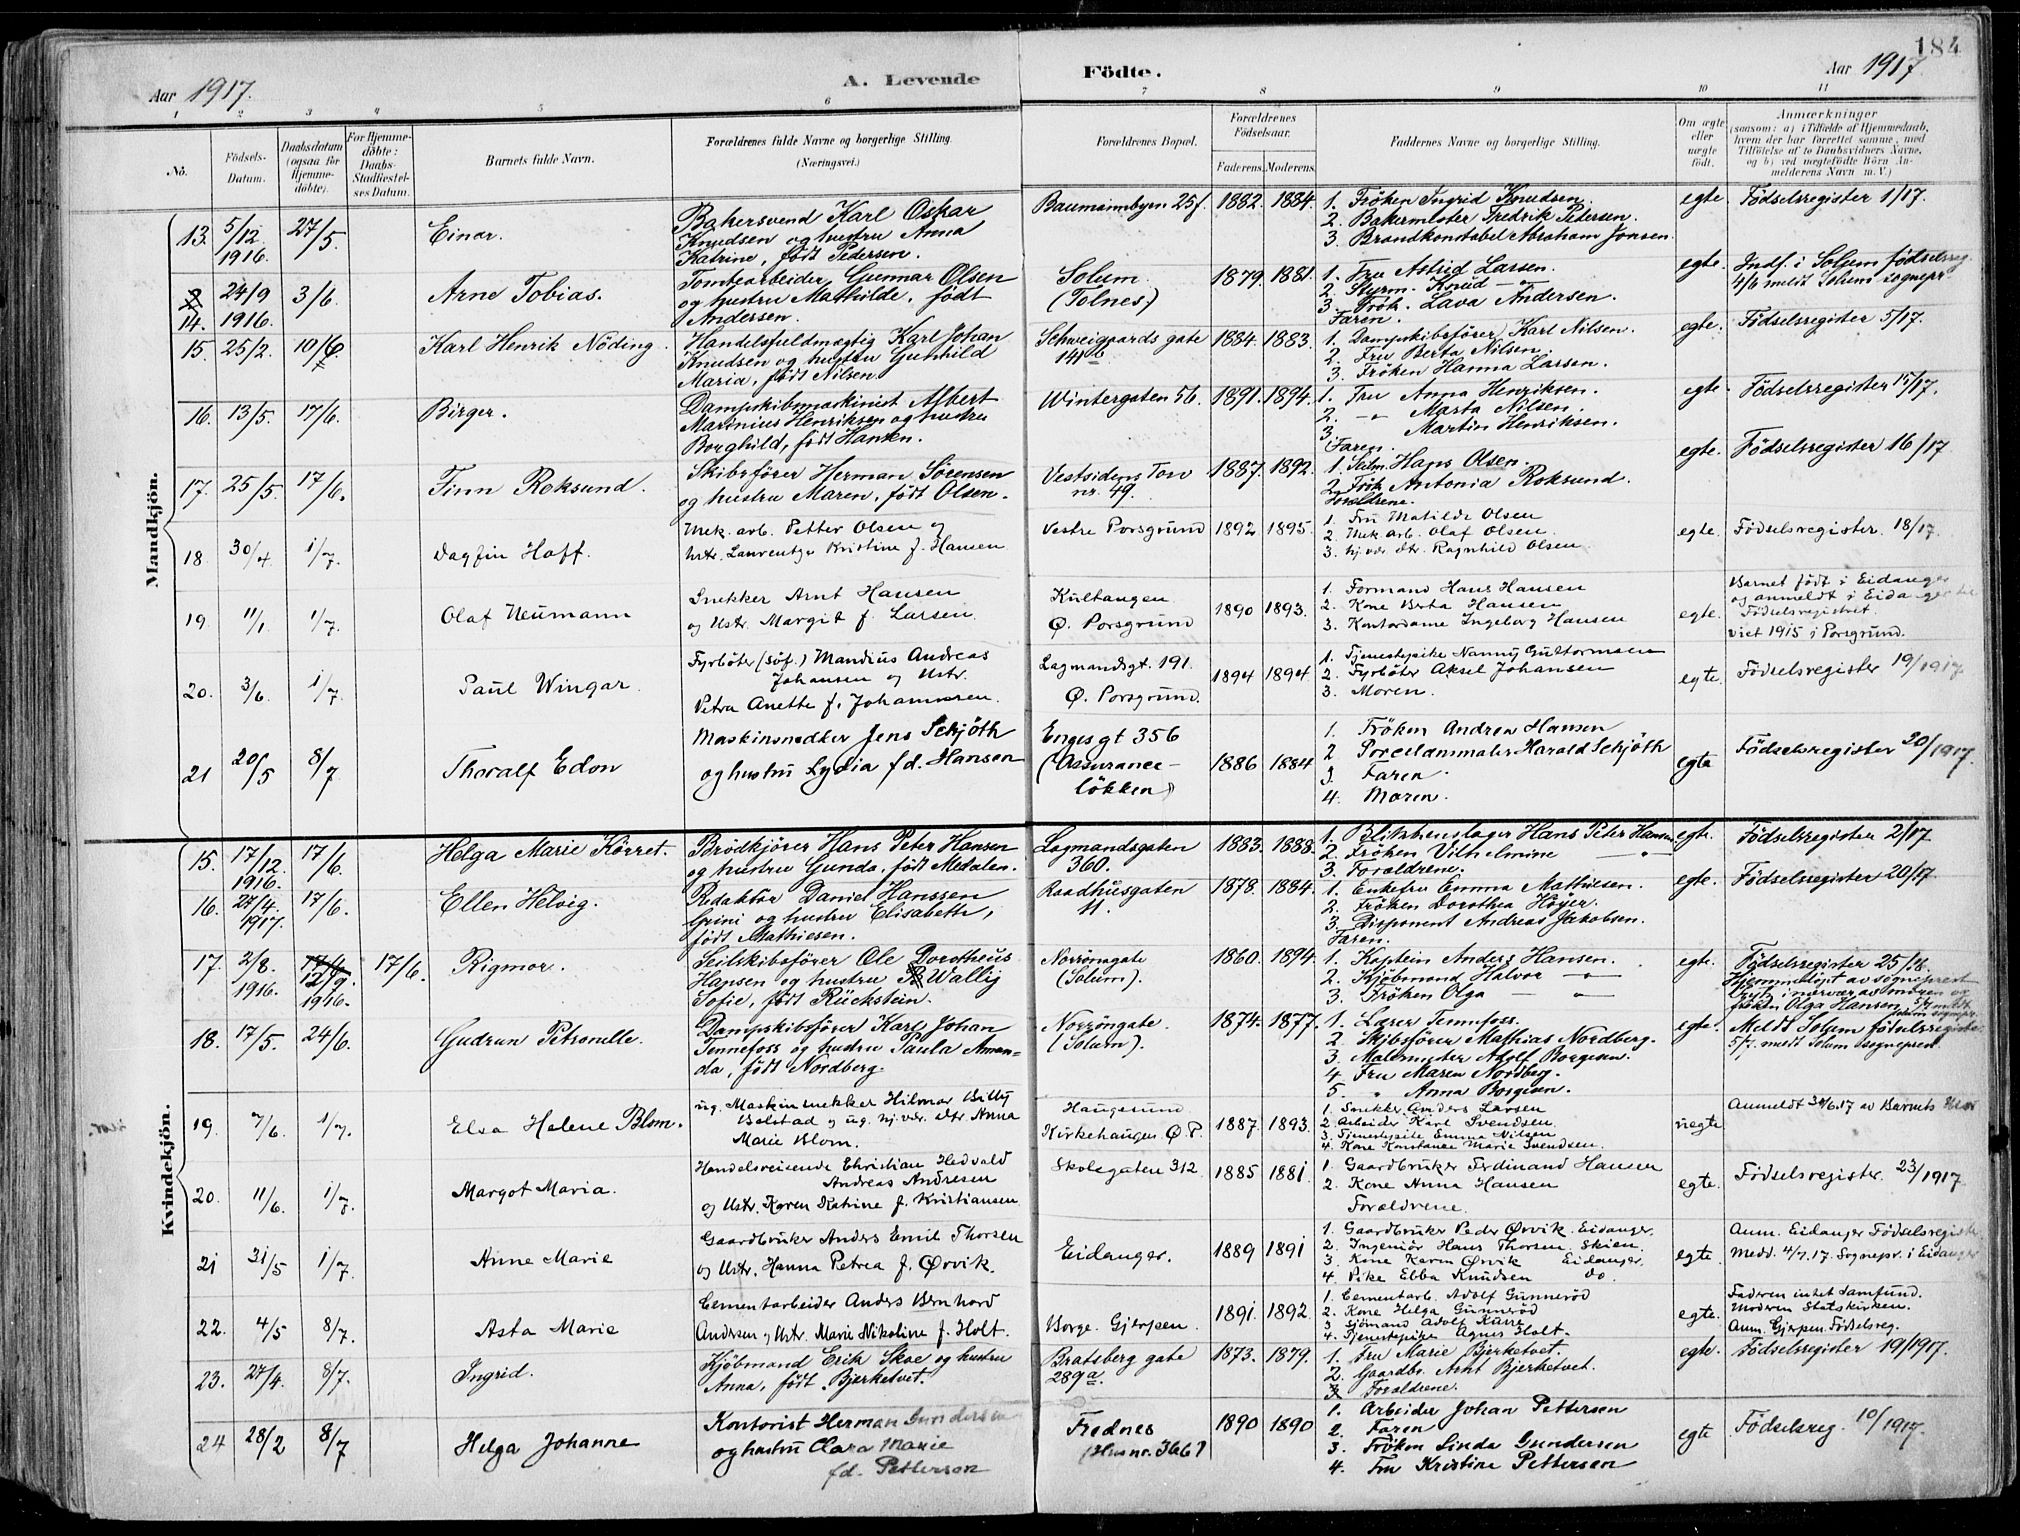 184
Aar 1917.
A. Levende
Födte.
Aar 1917.
1 2 3 4 5 6 7 8 9 10 11
No.
Födsels-
Datum.
Daabsdatum
(ogsaa for
Hjemme-
döbte).
For Hjemme-
döbte:
Daabs-
Stadfæstel-
ses Datum.
Barnets fulde Navn.
Forældrenes fulde Navne og borgerlige Stilling.
(Næringsvei.)
Forældrenes Bopæl.
Forældrenes
Födselsaar.
Faderens. Moderens.
Faddernes Navne og borgerlige Stilling.
Om ægte
eller
uægte
födt.
Anmærkninger
(saasom: a) i Tilfælde af Hjemmedaab,
hvem der har forrettet samme, med
Tilföielse af to Daabsvidners Navne,
og b) ved uægtefödte Börn An-
melderens Navn m. V.)
Mandkjön.
13. 5/12 1916. 27/5. Einar.
Bakersvend Karl Oskar
Knudsen og hustru Anna
Katrine, födt Pedersen.
Baumannbyen 25f. 1882. 1884.
1. Fröken Ingrid Knudsen.
2. Bakermester Fredrik Pedersen.
3. Brandkonstabel Abraham Jonsen.
egte Födselsregister 1/17.
14. 24/9 1916. 3/6. Arne Tobias.
Tomtearbeider Gunnar Olsen
og hustru Mathilde, födt
Andersen.
Solum
(Tolnes.)
1879. 1881.
1. Fru Astrid Larsen.
2. Styrm. Knud -"-
3. Frök. Lava Andersen.
Faren.
egte. Indf. i Solum födselsreg.
4/6 meldt Solum sognepr.
15. 25/2. 10/6 Karl Henrik Nöding.
Handelsfuldmægtig Karl Johan
Knudsen og hustru Gunhild
Maria, födt Nilsen.
Schweigaards gate
141b
1884. 1883.
1. Dampskibsförer Karl Nilsen.
2. Fru Berta Nilsen.
3. Fröken Hanna Larsen.
egte. Födselsregister 5/17.
16. 13/5. 17/6. Birger.
Dampskibsmaskinist Albert
Martinius Henriksen og hustru
Borghild, födt Hansen.
Wintergaten 56. 1891. 1894.
1. Fru Anna Henriksen.
2. -"- Marta Nilsen.
3. Martin Henriksen.
Faren.
egte. Födselsregister 15/17.
17. 25/5. 17/6. Finn Roksund.
Skibsförer Herman Sörensen
og hustru Maren, födt Olsen.
Vestsidens Torv
nr. 49.
1887. 1892.
1. Hans Olsen.
2. Frök Antonia Roksund.
Foraldrene.
egte. Födselsregister 16/17
18 30/4 1/7. Dagfin Hoff.
Mek. arb. Petter Olsen og
Hstr. Laurentze Kristine f. Hansen
Vestre Porsgrund 1892 1895.
1. Fru Matilde Olsen
2. Mek. arb. Olaf Olsen
3. hj. vær. dtr. Ragnhild Olsen
egte. Födselsregister. 18/17.
19 11/1. 1/7. Olaf Neumann
Snekker Arnt Hansen
og Hstr. Margit f. Larsen.
Kultangen
Ø. Porsgrund
1890 1893.
1. Formand Hans Hansen
2. Kone Berta Hansen
3. Kontordame Ingeborg Hansen
egte. Barnet födt i Eidanger
og anmeldt i Eidanger
Födselsregistret.
viet 1915 i Porsgrund.
20. 3/6. 1/7. Paul Wingar.
Fyrböter (söf.) Mandius Andreas
Johansen og Hstr.
Petra Anette f. Johannesen.
Lagmandsgt. 191.
Ø. Porsgrund.
1894 1894
1. Tjenestepike Nanny Guttormsen
2. Fyrböter Aksel Johansen
3. Moren.
egte. Födselsregister 19/1917.
21 20/5 8/7 Thoralf Edon
Maskinsnedker Jens Schjöth
og hustru Lydia fd. Hansen
Enges gt 356
(Assurance-
lökken)
1886 1884
1. Fröken Andrea Hansen
2 Porcelænsmaler Harald Schjöth
3. Faren.
4. Moren.
egte Födselsregister 20/1917.
Kvindekjön.
15. 17/12. 1916. 17/6. Helga Marie Körret.
Brödkjörer Hans Peter Hansen
og hustru Gunda, födt Medalen.
Lagmandsgaten
360.
1883. 1888.
1. Blikkenslager Hans Peter Hansen.
2. Fröken Vilhelmine -"-
3. Foraldrene.
egte. Födselsregister 2/17
16. 27/4. 1917. 17/6. Ellen Helvig.
Redaktör Daniel Hanssen
Grini og hustru Elisabeth,
födt Mathiesen.
Raadhusgaten
11.
1878. 1884.
1. Enkefru Emma Mathiesen.
2. Fröken Dorothea Höyer.
3. Disponent Andreas Jakobsen.
Faren.
egte. Födselsregister 20/17
17. 2/8. 1916. 12/9. 1916. 17/6. Rigmor.
Seilskibsförer Ole Dorotheus
Hansen og hustru Wallig
Sofie, födt Rückstein.
Norröngate
(Solum).
1860. 1894.
1. Kaptein Anders Hansen.
2. Kjöbmand Halvor -"-
3. Fröken Olga -"-
egte. Födselsregister 25/16.
Hjemmedöpt av sogneprest
i nærvær av moren og
fröken Olga Hansen 5/7 meldt
Solum sognepr.
18. 17/5. 24/6. Gudrun Petronelle.
Dampskibsförer Karl Johan
Tennefoss og hustru Paula Aman-
da, födt Nordberg.
Norröngate.
(Solum).
1874. 1877.
1. Lærer Tennefoss.
2. Skibsförer Mathias Nordberg.
3. Malermester Adolf Borgesen.
4. Fru Maren Nordberg.
5. " Anna Borgesen.
egte. Meldt Solum födselsregister
5/7. meldt Solum sogneprest.
19. 7/6. 1/7. Elsa Helene Blom.
ug. Maskinsnekker Hilmar Billy
Bolstad og ug. hj. vær. dtr Anna
Marie Blom.
Haugesund
Kirkehaugen Ø.P.
1887. 1893.
1. Snekker Anders Larsen
2. Arbeider Karl Svendsen.
3. Tjenestepike Emma Nilsen
4. Kone Konstanse Marie Svendsen.
uegte Anmeldt 30/6.17 av Barnets Mor
20. 11/6. 1/7. Margot Maria.
Handelsreisende Christian Hedvald
Andreas Andresen
og Hstr. Karen Katrine f. Kristiansen
Skolegaten 312 1885 1881
1. Gaardbruker Ferdinand Hansen
2. Kone Anna Hansen
Foraldrene.
egte. Födselsregister. 23/1917.
21 31/5 1/7. Anne Marie
Gaardbruker Anders Emil Thorsen
og Hstr. Hanna Petrea f. Ørvik.
Eidanger. 1889 1891
1. Gaardbruker Peder Ørvik. Eidanger.
2. Ingeniör Hans Thorsen Skien.
3. Kone Karen Ørvik Eidanger.
4. Pike Ebba Knudsen do.
egte. Anm. Eidanger Födselsregister
Medd. 4/7.17. Sognepr. i Eidanger
22. 4/5 8/7. Asta Marie
Cementarbeider Anders Bernhard
Andersen og Hstr. Marie Nikoline f. Holt.
Borge. Gjerpen. 1891. 1892
1. Cementarb. Adolf Gunneröd
2. Kone Helga Gunneröd
3 Sjömand Adolf Kane
4. Tjenestepike Agnes Holt.
egte. Faderen intet Samfund.
Moderen Statskirken.
Anm. Gjerpen Födselsreg.
23. 27/4. 8/7. Ingrid.
Kjöbmand Erik Skoe og hustru
Anna, födt Bjerketvet.
Bratsberg gate
289a.
1873. 1879.
1. Fru Marie Bjerketvet.
2. Gaardbr. Arnt Bjerketvet.
3 Foraldrene.
egte. Födselsregister 19/1917.
24 28/2 8/7 Helga Johanne
Kontorist Herman Gundersen
og hustru Clara Marie
fd. Pettersen
Frednes
(Husnr. 366)
1890 1890
1. Arbeider Johan Pettersen
2. Faren
3. Fröken Linda Gundersen
4. Fru Kristine Pettersen
egte Födselsreg. 10/1917.